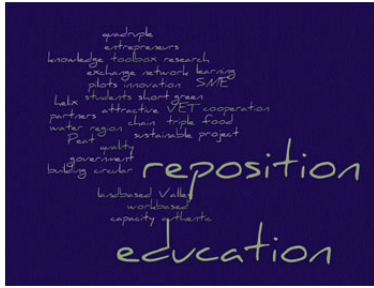 quadruple
entrepreneurs
knowledge toolbox research
exchange network learning
pilots innovation SME
students short green
helix attractive VET cooperation
partners chain triple food
water region sustainable project
Peat quality
government
building circular reposition
landbased Valley
workbased
capacity authentic
education